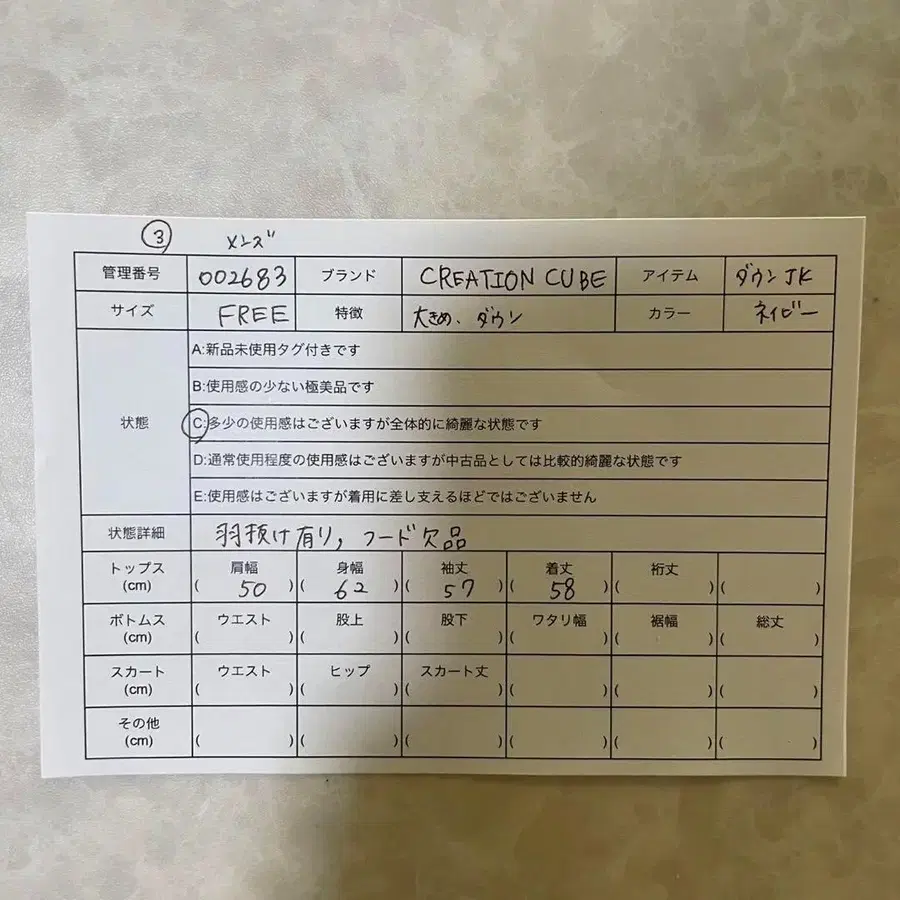 ③ メンズ
管理番号 002683 ブランド CREATION CUBE アイテム ダウンJK
サイズ FREE 特徴 大きめ、ダウン カラー ネイビー
状態
A:新品未使用タグ付きです
B:使用感の少ない極美品です
C:多少の使用感はございますが全体的に綺麗な状態です
D:通常使用程度の使用感はございますが中古品としては比較的綺麗な状態です
E:使用感はございますが着用に差し支えるほどではございません
状態詳細 羽抜け有り,フード欠品
トップス 肩幅 身幅 袖丈 着丈 裄丈
(cm) ( 50 ) ( 62 ) ( 57 ) ( 58 ) ( ) ( )
ボトムス ウエスト 股上 股下 ワタリ幅 裾幅 総丈
(cm) ( ) ( ) ( ) ( ) ( ) ( )
スカート ウエスト ヒップ スカート丈
(cm) ( ) ( ) ( ) ( ) ( ) ( )
その他
(cm) ( ) ( ) ( ) ( ) ( ) ( )